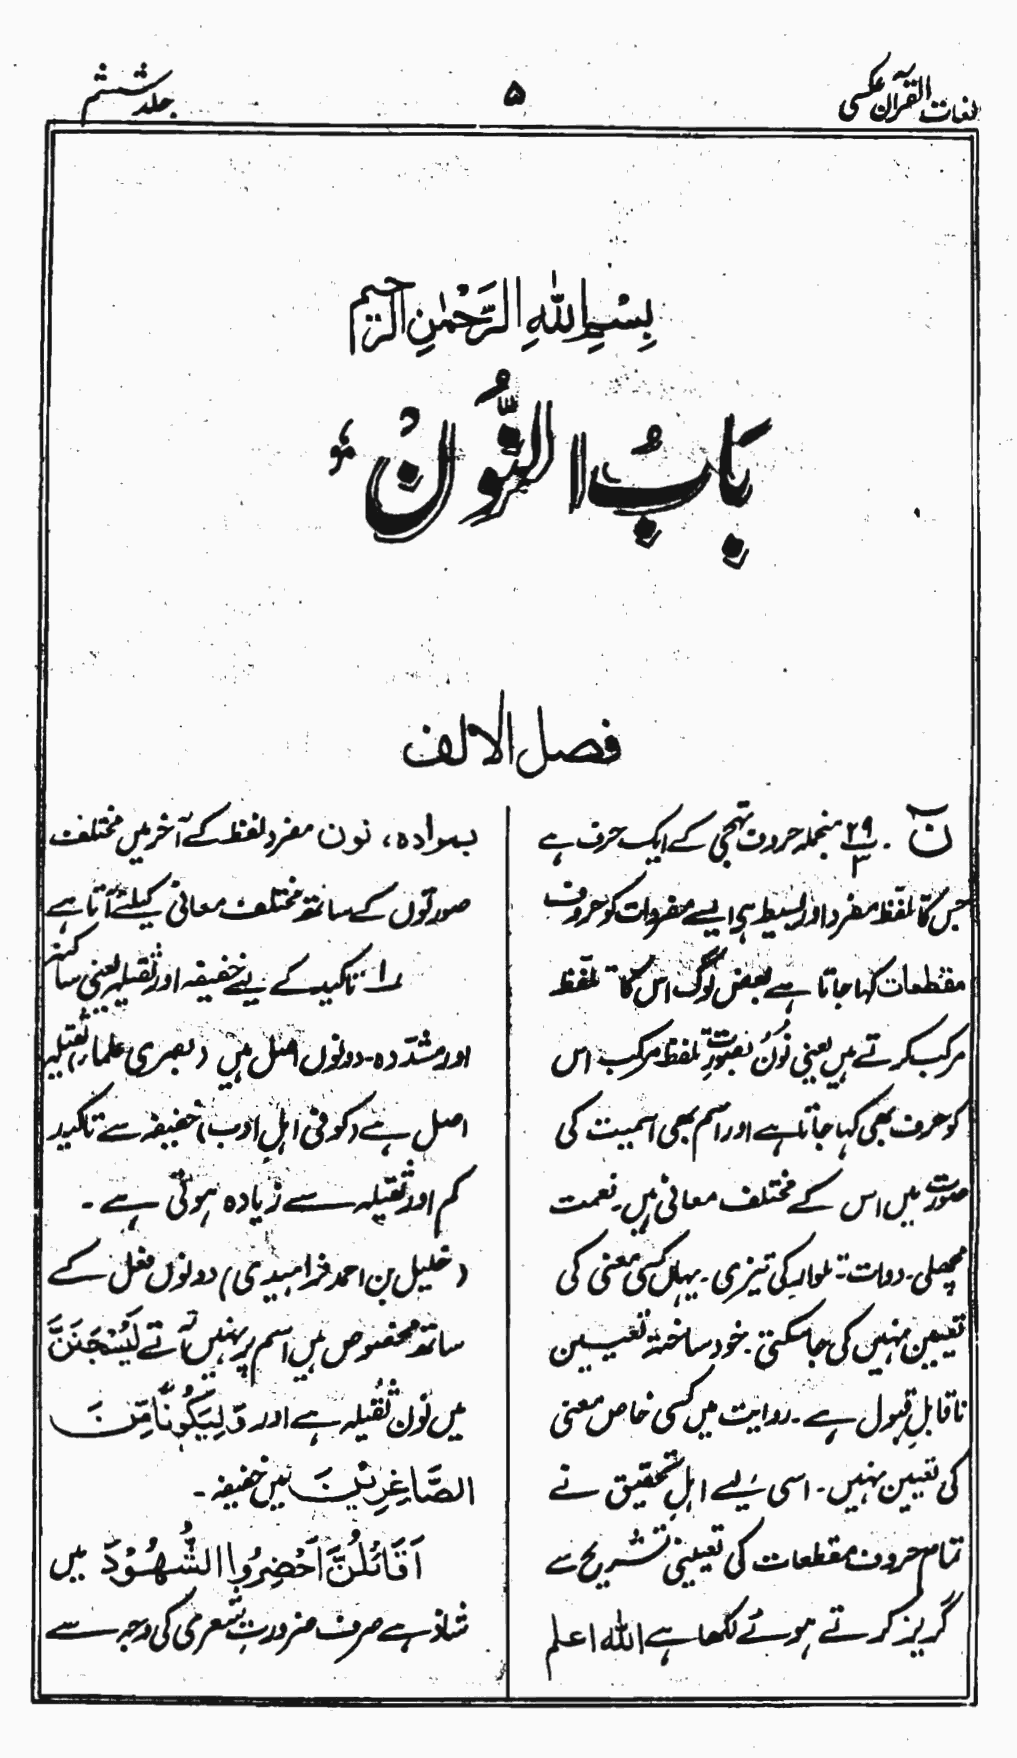 لغات القرآن عکسی
۵
جلد ششم
بِسْمِ اللّٰهِ الرَّحْمٰنِ الرَّحِیْم
بَابُ النُّوْنُ
فصل الالف
نٓ . ۲۹/۳ منجملہ حروف تہجی کے ایک حرف ہے
جس کا تلفظ مفرد اور بسیط ہو ایسے مفردات کو حروف
مقطعات کہا جاتا ہے بعض لوگ اس کا تلفظ
مرکب کرتے ہیں یعنی نُوْنُ بصورتِ تلفظ مرکب اس
کو حرف بھی کہا جاتا ہے اور اسم بھی اسمیت کی
صورت میں اس کے مختلف معانی ہیں۔ نعمت
مچھلی۔ دوات۔ تلوار کی تیزی۔ یہاں کسی معنی کی
تعیین نہیں کی جا سکتی۔ خود ساختہ تعیین
ناقابلِ قبول ہے۔ روایت میں کسی خاص معنی
کی تعیین نہیں۔ اسی لیے اہلِ تحقیق نے
تمام حروف مقطعات کی تعیینی تشریح سے
گریز کرتے ہوئے لکھا ہے اللہ اعلم
بمرادہ، نون مفرد لفظ کے آخر میں مختلف
صورتوں کے ساتھ مختلف معانی کیلئے آتا ہے
۱۔ تاکید کے لیے خفیفہ اور ثقیلہ یعنی ساکنہ
اور مشدّدہ۔ دونوں اصل ہیں (بصری علماء) ثقیلہ
اصل ہے (کوفی اہلِ ادب) خفیفہ سے تاکید
کم اور ثقیلہ سے زیادہ ہوتی ہے۔
(خلیل بن احمد فراہیدی) دونوں فعل کے
ساتھ مخصوص ہیں اسم پر نہیں آتے لَیُسْجَنَنَّ
میں نون ثقیلہ ہے اور وَلِیَکُوْنًا مِّنَ
الصَّاغِرِیْنَ میں خفیفہ۔
اَقَائِلُنَّ اَحْضِرُوا الشُّهُوْدَ میں
شاذ ہے صرف ضرورتِ شعری کی وجہ سے